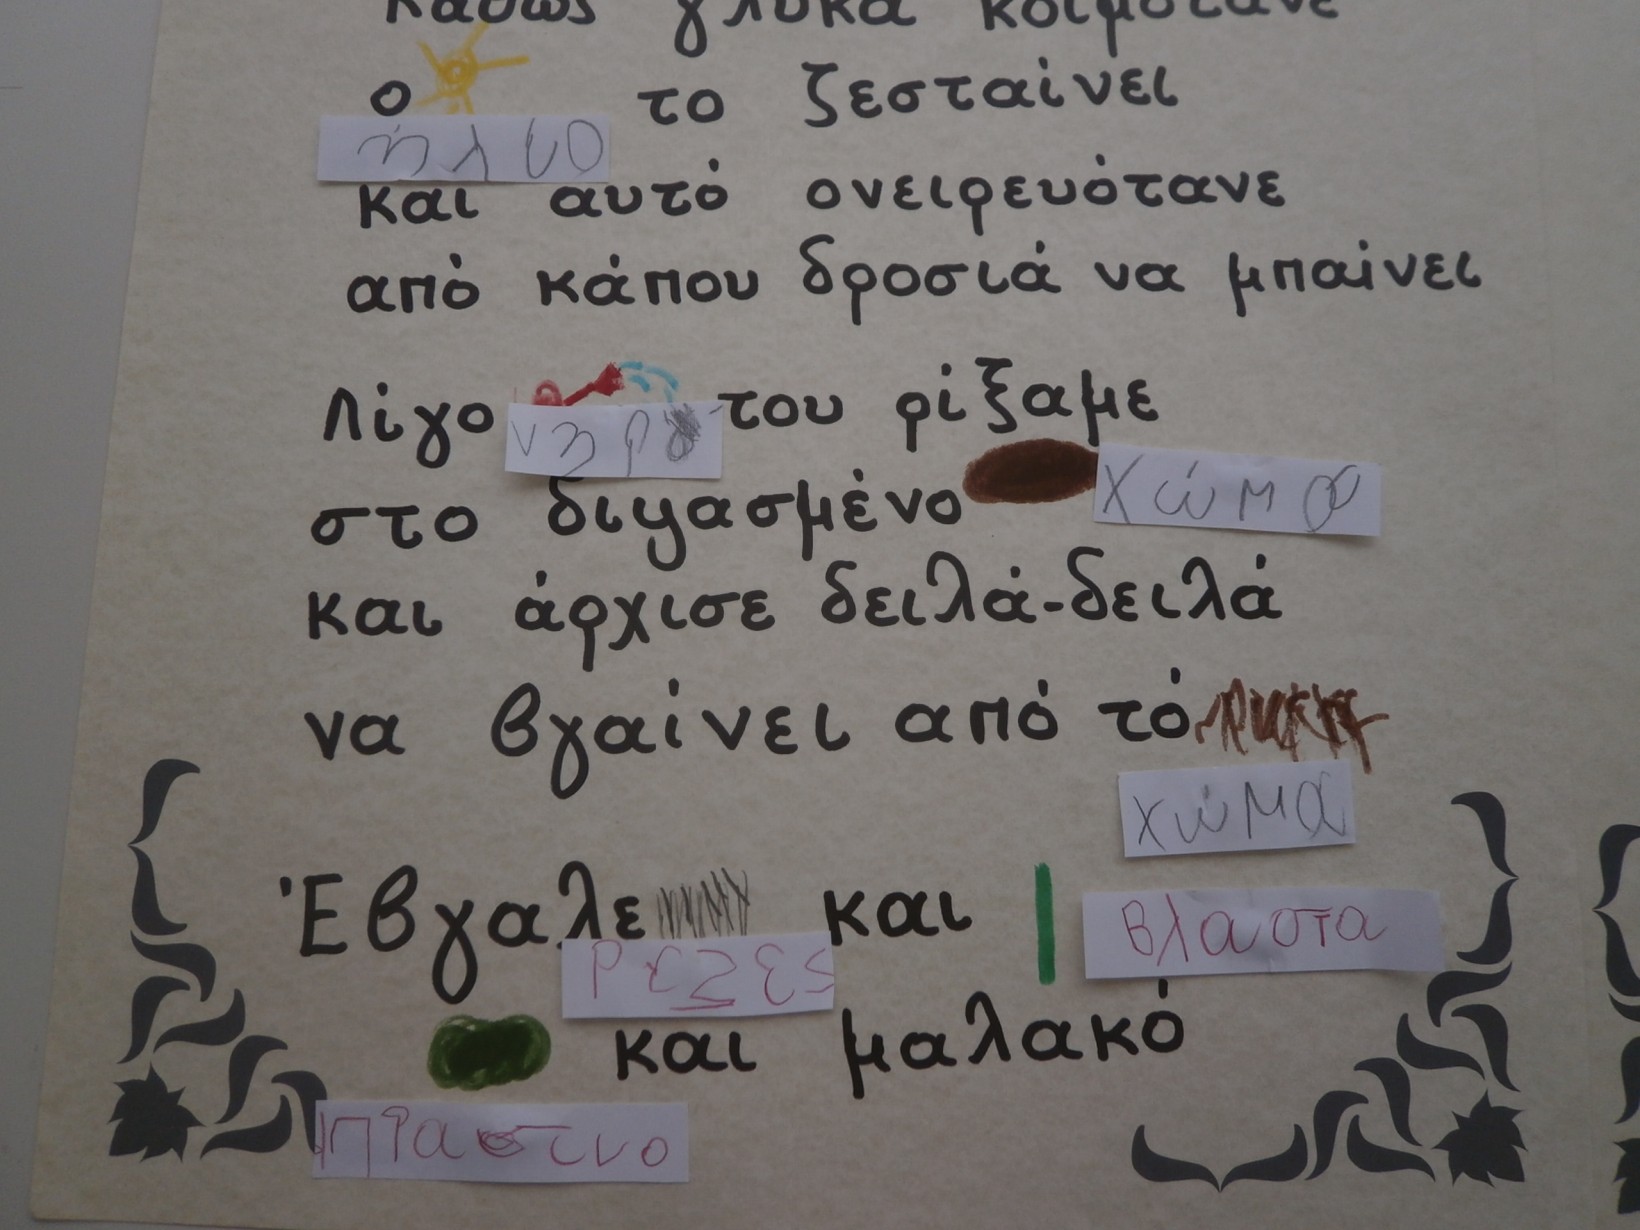 καθώς γλυκά κοιμότανε
ο το ζεσταίνει
και αυτό ονειρευότανε
από κάπου δροσιά να μπαίνει
Λίγο του ρίξαμε
στο διψασμένο χώμα
και άρχισε δειλά-δειλά
να βγαίνει από τό
χώμα
Έβγαλε και βλαστα
και μαλακό